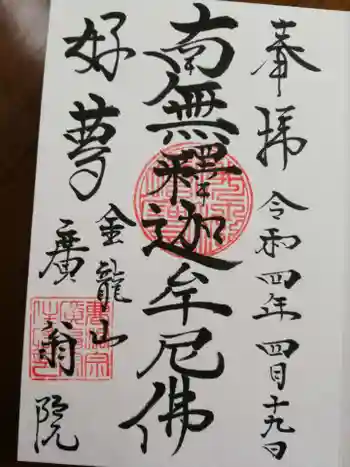 奉拝 令和四年 四月十九日
南無釋迦牟尼佛
好夢
金龍山
廣翁院